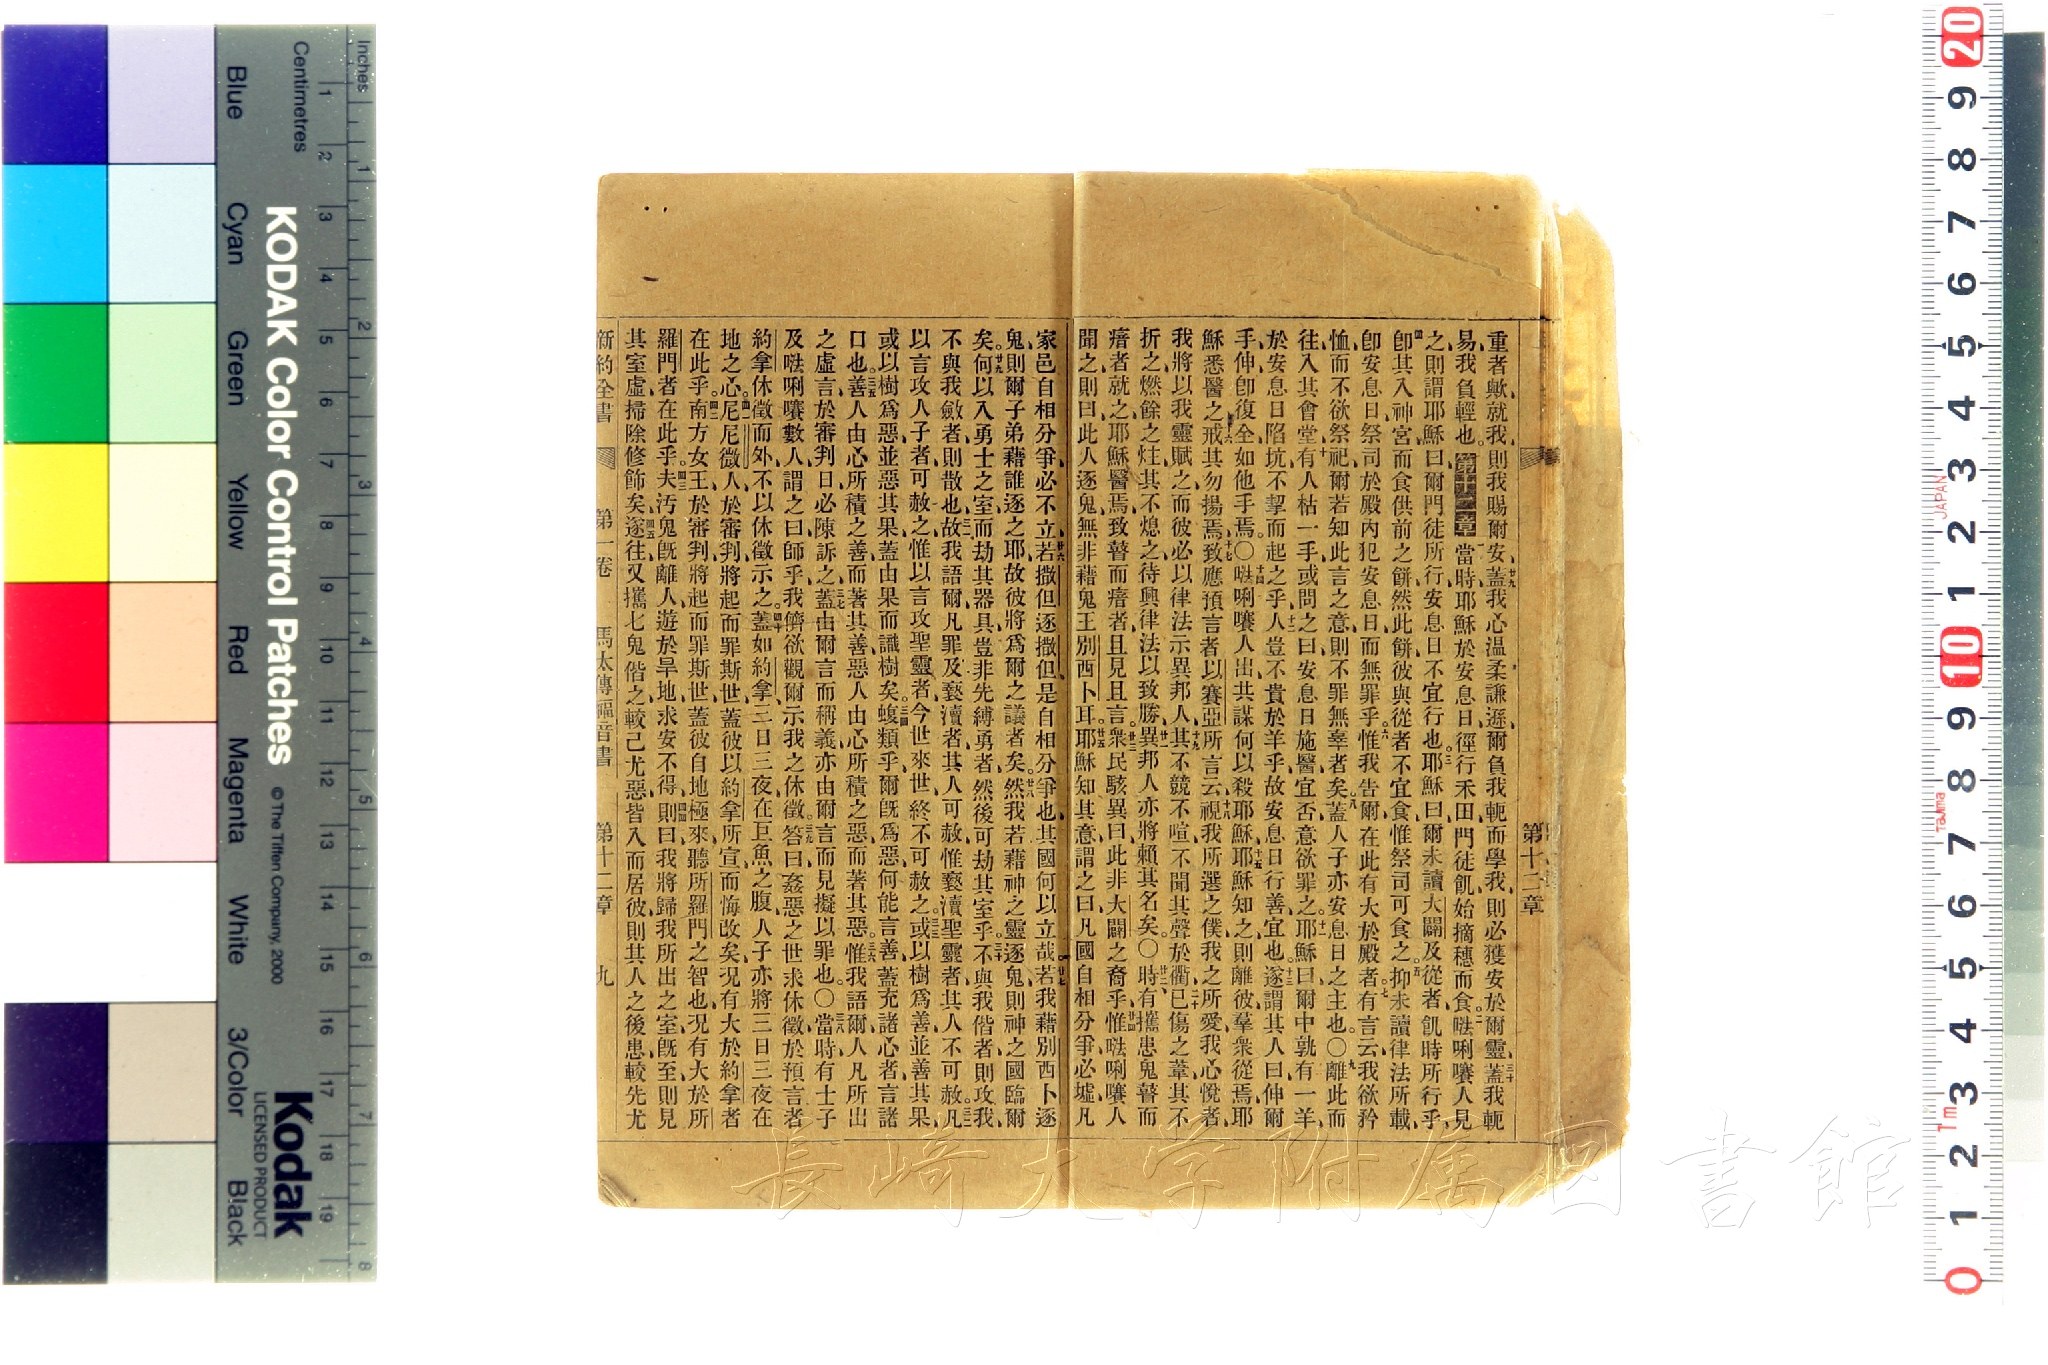 第十二章
重者歟就我則我賜爾安蓋我心温柔謙遜爾負我軛而學我則必獲安於爾靈蓋我軛
易我負輕也第十二章當時耶穌於安息日徑行禾田門徒飢始摘穗而食㗫唎㘔人見
之則謂耶穌曰爾門徒所行安息日不宜行也耶穌曰爾未讀大闢及從者飢時所行乎
卽其入神宮而食供前之餅然此餅彼與從者不宜食惟祭司可食之抑未讀律法所載
卽安息日祭司於殿內犯安息日而無罪乎惟我告爾在此有大於殿者有言云我欲矜
恤而不欲祭祀爾若知此言之意則不罪無辜者矣蓋人子亦安息日之主也〇離此而
往入其會堂有人枯一手或問之曰安息日施醫宜否意欲罪之耶穌曰爾中孰有一羊
於安息日陷坑不挈而起之乎人豈不貴於羊乎故安息日行善宜也遂謂其人曰伸爾
手伸卽復全如他手焉〇㗫唎㘔人出共謀何以殺耶穌耶穌知之則離彼羣衆從焉耶
穌悉醫之戒其勿揚焉致應預言者以賽亞所言云視我所選之僕我之所愛我心悅者
我將以我靈賦之而彼必以律法示異邦人其不競不喧不聞其聲於衢已傷之葦其不
折之燃餘之炷其不熄之待興律法以致勝異邦人亦將賴其名矣〇時有攜患鬼瞽而
瘖者就之耶穌醫焉致瞽而瘖者且見且言衆民駭異曰此非大闢之裔乎惟㗫唎㘔人
聞之則曰此人逐鬼無非藉鬼王別西卜耳耶穌知其意謂之曰凡國自相分爭必墟凡
家邑自相分爭必不立若撒但逐撒但是自相分爭也其國何以立哉若我藉別西卜逐
鬼則爾子弟藉誰逐之耶故彼將爲爾之議者矣然我若藉神之靈逐鬼則神之國臨爾
矣何以入勇士之室而劫其器具豈非先縛勇者然後可劫其室乎不與我偕者則攻我
不與我斂者則散也故我語爾凡罪及褻瀆者其人可赦惟褻瀆聖靈者其人不可赦凡
以言攻人子者可赦之惟以言攻聖靈者今世來世終不可赦之或以樹爲善並善其果
或以樹爲惡並惡其果蓋由果而識樹矣蝮類乎爾旣爲惡何能言善蓋充諸心者言諸
口也善人由心所積之善而著其善惡人由心所積之惡而著其惡惟我語爾人凡所出
之虛言於審判日必陳訴之蓋由爾言而稱義亦由爾言而見擬以罪也〇當時有士子
及㗫唎㘔數人謂之曰師乎我儕欲觀爾示我之休徵答曰姦惡之世求休徵於預言者
約拿休徵而外不以休徵示之蓋如約拿三日三夜在巨魚之腹人子亦將三日三夜在
地之心尼尼微人於審判將起而罪斯世蓋彼以約拿所宣而悔改矣況有大於約拿者
在此乎南方女王於審判將起而罪斯世蓋彼自地極來聽所羅門之智也況有大於所
羅門者在此乎夫汚鬼旣離人遊於旱地求安不得則曰我將歸我所出之室旣至則見
其室虛掃除修飾矣遂往又攜七鬼偕之較己尤惡皆入而居彼則其人之後患較先尤
新約全書 第一卷 馬太傳福音書 第十二章 九
Inches
Centimetres
Blue
Cyan
Green
Yellow
Red
Magenta
White
3/Color
Black
KODAK Color Control Patches
© The Tiffen Company, 2000
Kodak
LICENSED PRODUCT
1 2 3 4 5 6 7 8 9 10 11 12 13 14 15 16 17 18 19
1 2 3 4 5 6 7 8
20 9 8 7 6 5 4 3 2 1 10 9 8 7 6 5 4 3 2 1 0
JAPAN
Tajima
Tm
長崎大学附属図書館